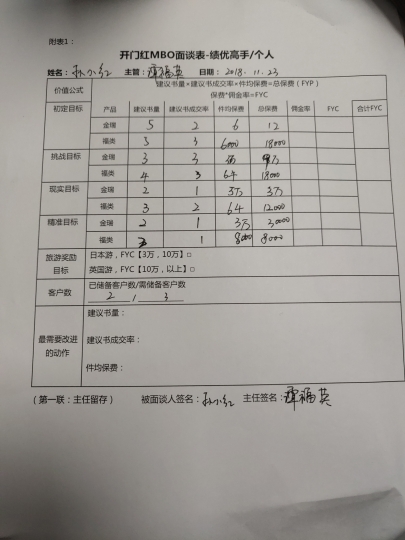 附表1：
开门红MBO面谈表-绩优高手/个人
姓名：孙小红 主管： 日期：2018.11.23
价值公式 建议书量*建议书成交率*件均保费=总保费（FYP）
保费*佣金率=FYC
初定目标 产品 建议书量 建议书成交率 件均保费 总保费 佣金率 FYC 合计FYC
金瑞 5 2 6 12
福类 5 3 6000 18000
挑战目标 金瑞 3 3
福类 4 3 18000
现实目标 金瑞 2 1 3万 3万
福类 3 2 12000
精准目标 金瑞 2 1 3万 30000
福类 1 8000 8000
旅游奖励目标 日本游，FYC【3万，10万】□
英国游，FYC【10万，以上】□
客户数 已储备客户数/需储备客户数
2 / 3
最需要改进的动作 建议书量：
建议书成交率：
件均保费：
（第一联：主任留存） 被面谈人签名：孙小红 主任签名：